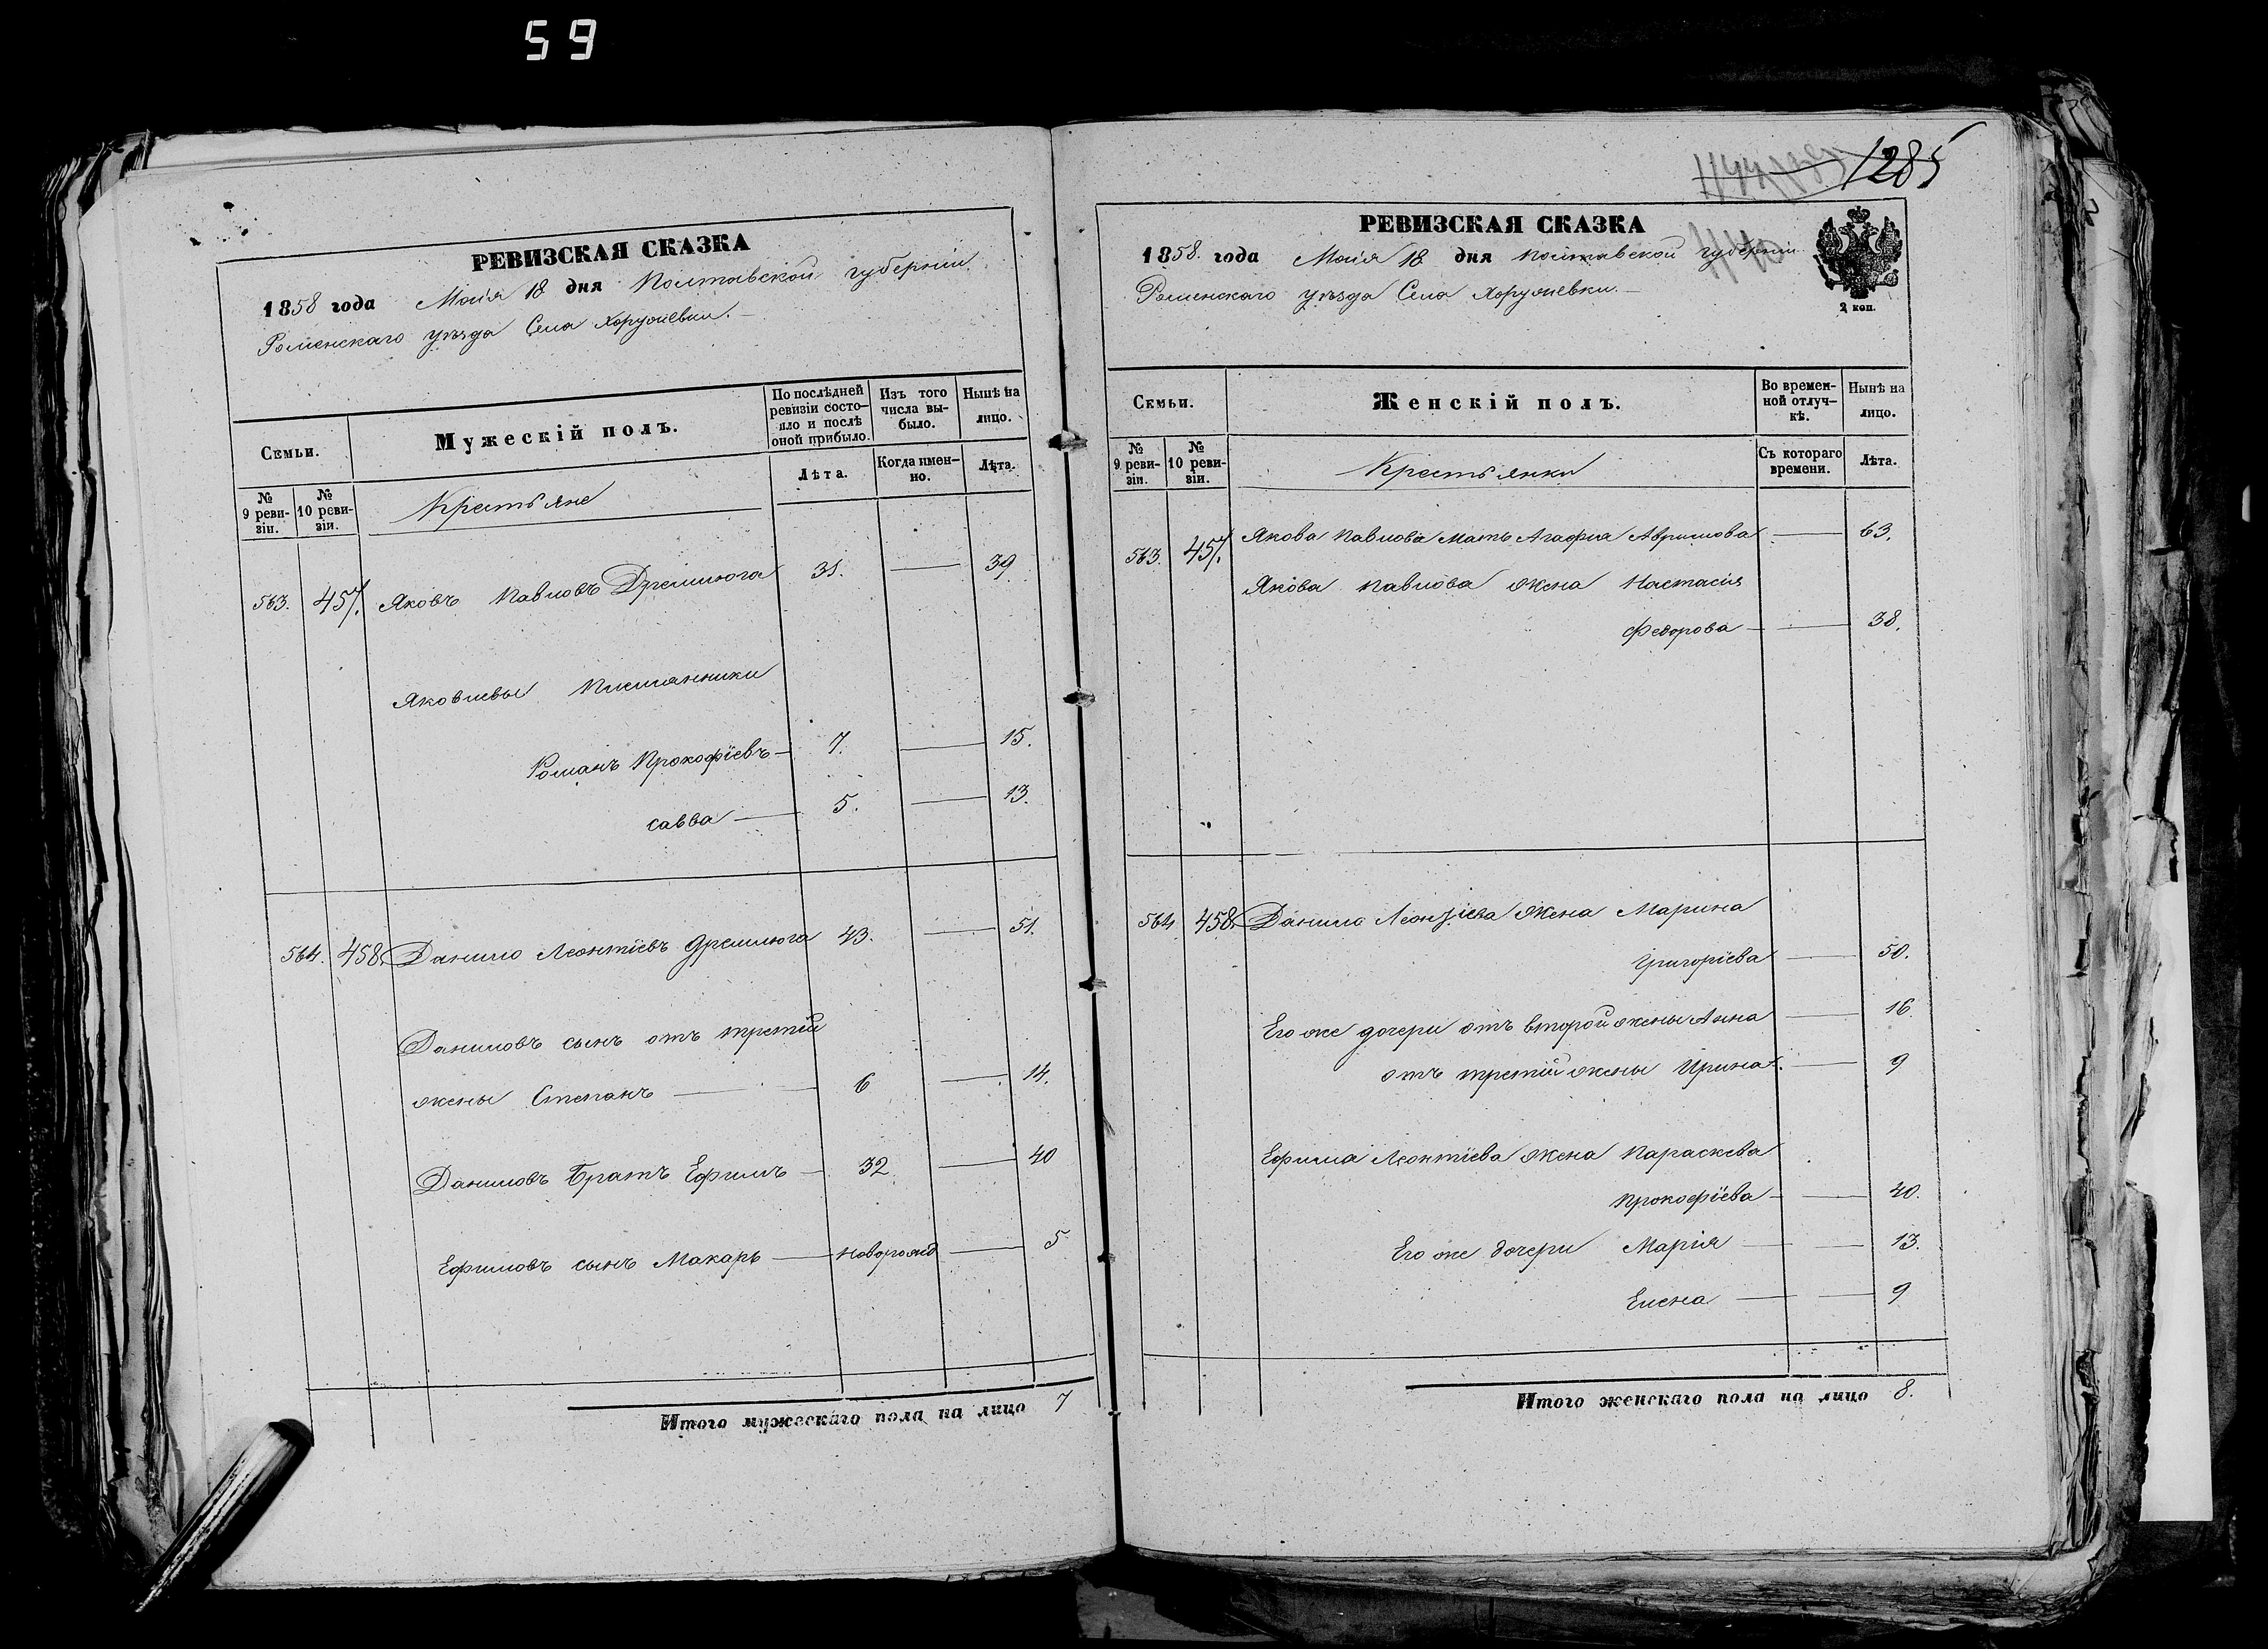 59
РЕВИЗСКАЯ СКАЗКА
1858 года Маія 18 дня Полтавской губерніи
Роменскаго уѣзда Села Хоружевки.
Семьи.
Мужескій полъ.
По послѣдней ревизіи состояло и послѣ оной прибыло.
Изъ того числа выбыло.
Нынѣ на лицо.
№ 9 ревизіи.
№ 10 ревизіи.
Крестьяне
Лѣта.
Когда именно.
Лѣта.
563. 457. Яковъ Павловъ Дремлюга 31. — 39
Яковлевы племянники
Романъ Прокофіевъ — 7. — 15.
Савва — 5. — 13.
564. 458. Данило Леонтіевъ Дремлюга 43. — 51.
Даниловъ сынъ отъ третій
жены Степанъ — 6 — 14.
Даниловъ братъ Ефимъ — 32 — 40
Ефимовъ сынъ Макаръ — новорожд — 5
Итого мужескаго пола на лицо 7
1285
РЕВИЗСКАЯ СКАЗКА
1858. года Маія 18 дня Полтавской губерніи
Роменскаго уѣзда Села Хоружевки.
2 коп.
Семьи.
Женскій полъ.
Во временной отлучкѣ.
Нынѣ на лицо.
№ 9 ревизіи.
№ 10 ревизіи.
Крестьянки
Съ котораго времени.
Лѣта.
563. 457. Якова Павлова мать Агафия — 63.
Якова Павлова жена Настасія
Федорова — 38.
564 458. Данила Леонтіева жена Марина
Григоріева — 50.
Его же дочери отъ второй жены Анна — 16
отъ третій жены Ирина — 9
Ефима Леонтіева жена Параскева
Прокофіева — 40.
Его же дочери Марія — 13.
Елена — 9
Итого женскаго пола на лицо 8.